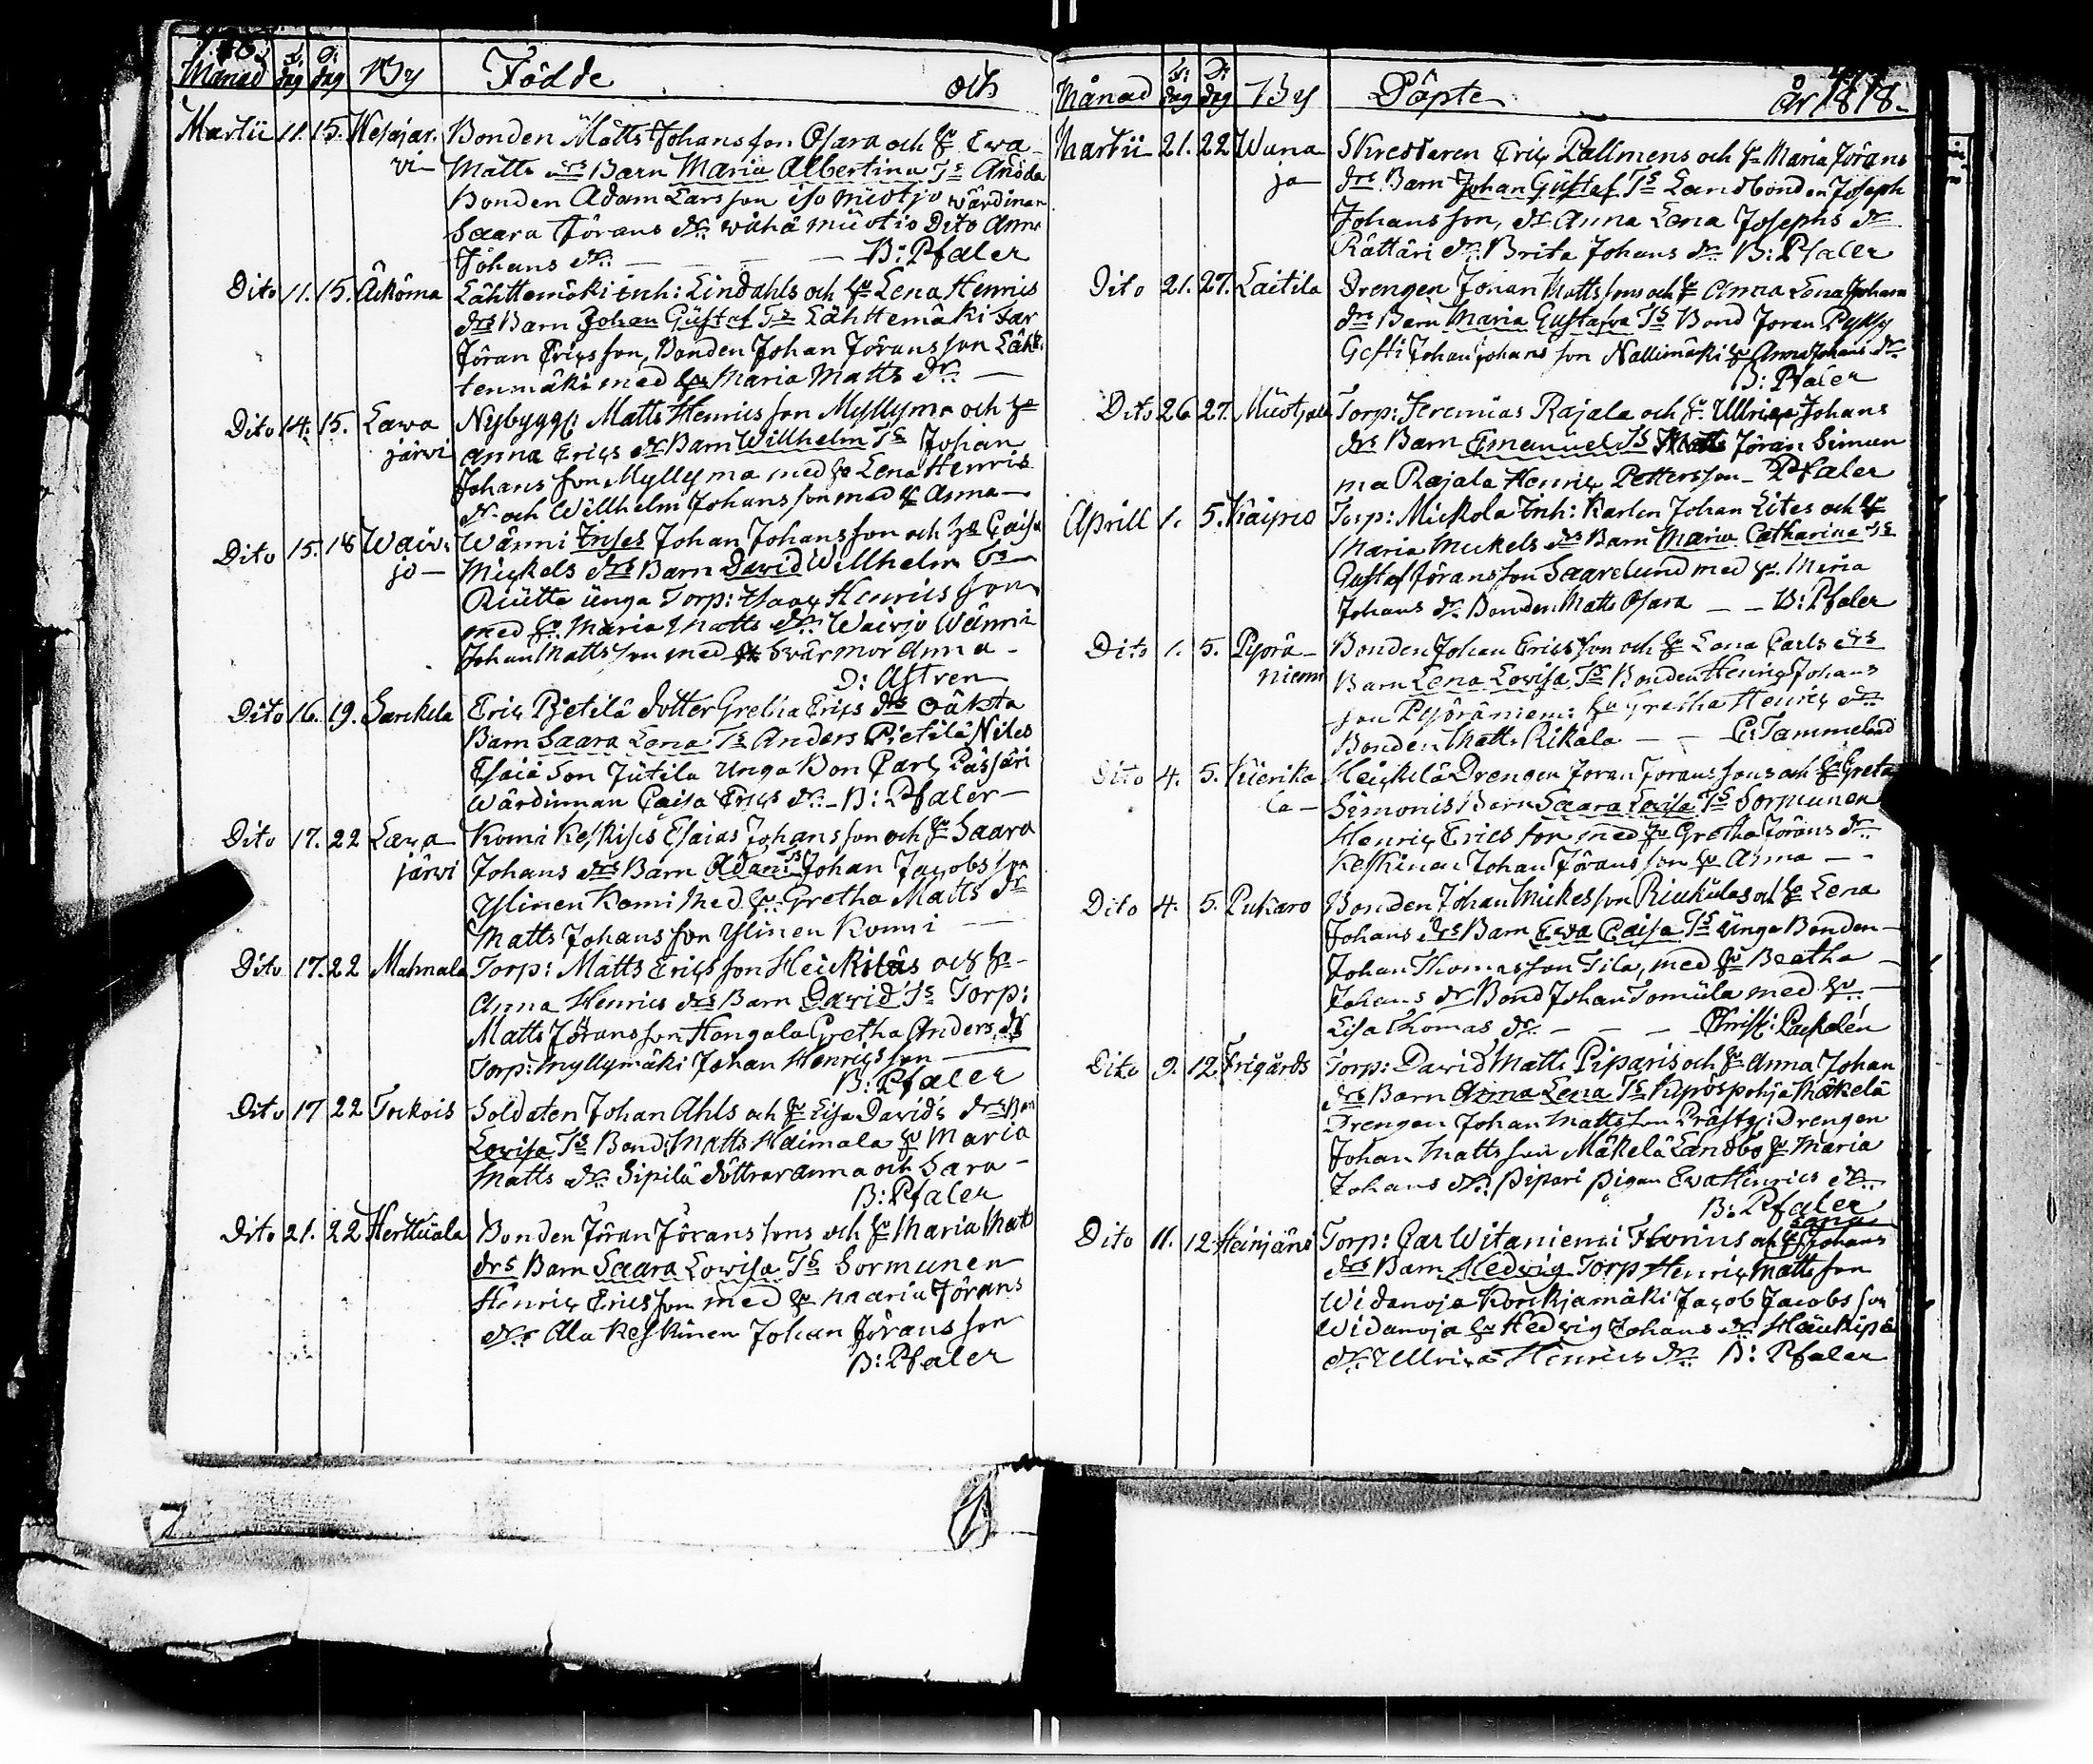 Månad F: dag D: dag By Födde och
Martii 11. 15. Wesajär- Bonden Matts Johansson Ojara och hu Ewa
vi Matts drs Barn Maria Albertina Ts
Bonden Adam Larsson iso müotjo wärdinan
Saara Jörans dr: wähä müotio Dito Anna
Johans dr: — — — B: Pfaler
Dito 11. 15. Lähttemäki inh: Lindahls och hu Lena Henrics
drs Barn Johan Güstaf Ts Lähttemäki
Jöran Ericsson, Bonden Johan Jöransson Läht-
tenmäki med hu Maria Matts dr: —
Dito 14. 15. Lawa Nybygg: Matts Henricsson Myllyma och hu
järwi Anna Erics dr Barn Willhelm Ts Johan
Johansson Myllyma med hu Lena Henrics
dr och Willhelm Johansson med hu Anna —
Dito 15. 18 Johan Johansson och hu Caisa
jo — Mickels drs Barn David Willhelm Ts
ünga Torp: Henricsson
med hu Maria Matts dr:
Johan Mattsson med Swärmor Anna -
D: Astren
Dito 16. 19. Sarckela Eric Pietilä dotter Gretha Erics drs oäkta
Barn Saara Lena Ts Anders Pietilä Niles
Esaia Son Jütila Unga Bon Carl
Wärdinnan Caisa Erics dr: - B: Pfaler —
Dito 17. 22 Lawa Esaias Johansson och hu Saara
järwi Johans drs Barn Adam Ts Johan Jacobsson
Ylinen Komi med hu Gretha Matts dr
Matts Johansson Ylinen Komi —
Dito 17. 22 Torp: Matts Ericsson Heickiläs och hu -
Anna Henrics drs Barn David Ts Torp:
Matts Jöransson Hongala Gretha Anders dr
Torp: Myllymäki Johan Henricsson —
B: Pfaler
Dito 17 22 Torkois Soldaten Johan Ahls och hu Lisa Davids drs Barn
Lovisa Ts Bond: Matts Haimala hu Maria
Matts dr: Sipilä döttrar Anna och Sara -
B: Pfaler
Dito 21. 22 Herttüala Bonden Jöran Jöranssons och hu Maria Matts
drs Barn Saara Lowisa Ts Sormunen
Henric Ericsson med hu Maaria Jörans
dr: Ala Keskinen Johan Jöransson
B: Pfaler
Månad F: dag D: dag By Döpte År 1818.
Martii 21. 22 Wuna Skreddaren Eric Pallmens och hu Maria Jörans
jo — drs Barn Johan Güstaf Ts Landbonden Joseph
Johansson, dr Anna Lena Josephs dr
Rättäri dr: Brita Johans dr: B: Pfaler
Dito 21. 27. Laitila Drengen Johan Mattssons och hu Anna Lena Johans
drs Barn Maria Gustafva Ts Bond Joran
Johan Johansson Nallimäki hu Anna Johans dr:
B: Pfaler
Dito 26 27. Müotjala Torp: Jeremias Rajala och hu Ullrica Johans
drs Barn Emanuel Ts Jöran Simun
ma Rajala Henric Pettersson — Pfaler
Aprill 1. 5. Kaipio Torp: Mickola inh: Karlen Johan Lites och hu
Maria Mickels drs Barn Maria Catharina Ts
Gustaf Jöransson Saarelund med hu. Maria
Johans dr: Bonden Matts Ojara — — B: Pfaler
Dito 1. 5. Pyörä- Bonden Johan Ericsson och hu Lena Carls drs
niemi Barn Lena Lovisa Ts Bonden Henric Johans
son Pyöräniemi hu Gretha Henrics dr:
Bonden Matts Rikala — — C: Tammeland
Dito 4. 5. Heickelä Drengen Joran Joranssons och hu Greta
la — Simonis Barn Saara Lovisa Ts Sormunen
Henric Ericsson med hu Gretha Jörans dr:
Keskinen Johan Jöransson hu Anna — -
Dito 4. 5. Pukaro Bonden Johan Mickelsson och hu Lena
Johans drs Barn Ewa Caisa Ts ünga Bonden —
Johan Thomasson Tila, med hu Beatha —
Johans dr Bond Johan Tomüla med hu —
Lisa Thomas dr: — — — Christ: Packalén
Dito 9. 12 Frigårds Torp: David Matts Piparis och hu Anna Johan
drs Barn Anna Lena Ts Mäkelä
Drengen Johan Mattsson Prästg: Drengen
Johan Mattsson Mäkelä Landbo hu Maria
Johans dr: Pipari Pigan Ewa Henrics dr:
B: Pfaler
Dito 11. 12 Heinjäns Torp: Car Witaniemi och hu Johans
drs Barn Hedvig Torp Henric Mattsson
Widanoja Jacob Jacobsson
Widanoja hu Hedvig Johans dr
dr: Ullrica Henrics dr: B: Pfaler